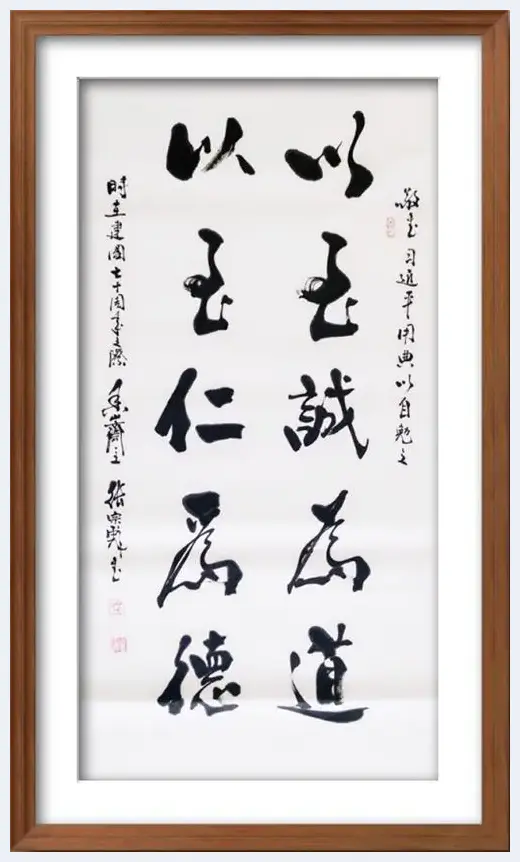 敬书习近平用典以自勉之
以至诚為道
以至仁為德
时在建国七十周年之际 香斋主 徐宗彪书